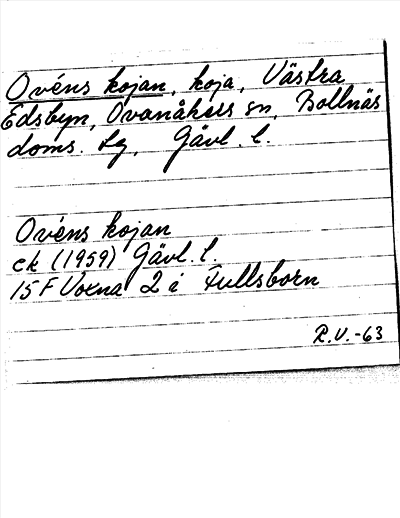 Ovéns kojan, koja, Västra
Edsbyn, Ovanåkers sn, Bollnäs
doms. Lg, Gävl. l.
Ovéns kojan
ek (1959) Gävl. l.
15 F Voxna 2 i Fullsborn
R.V.-63